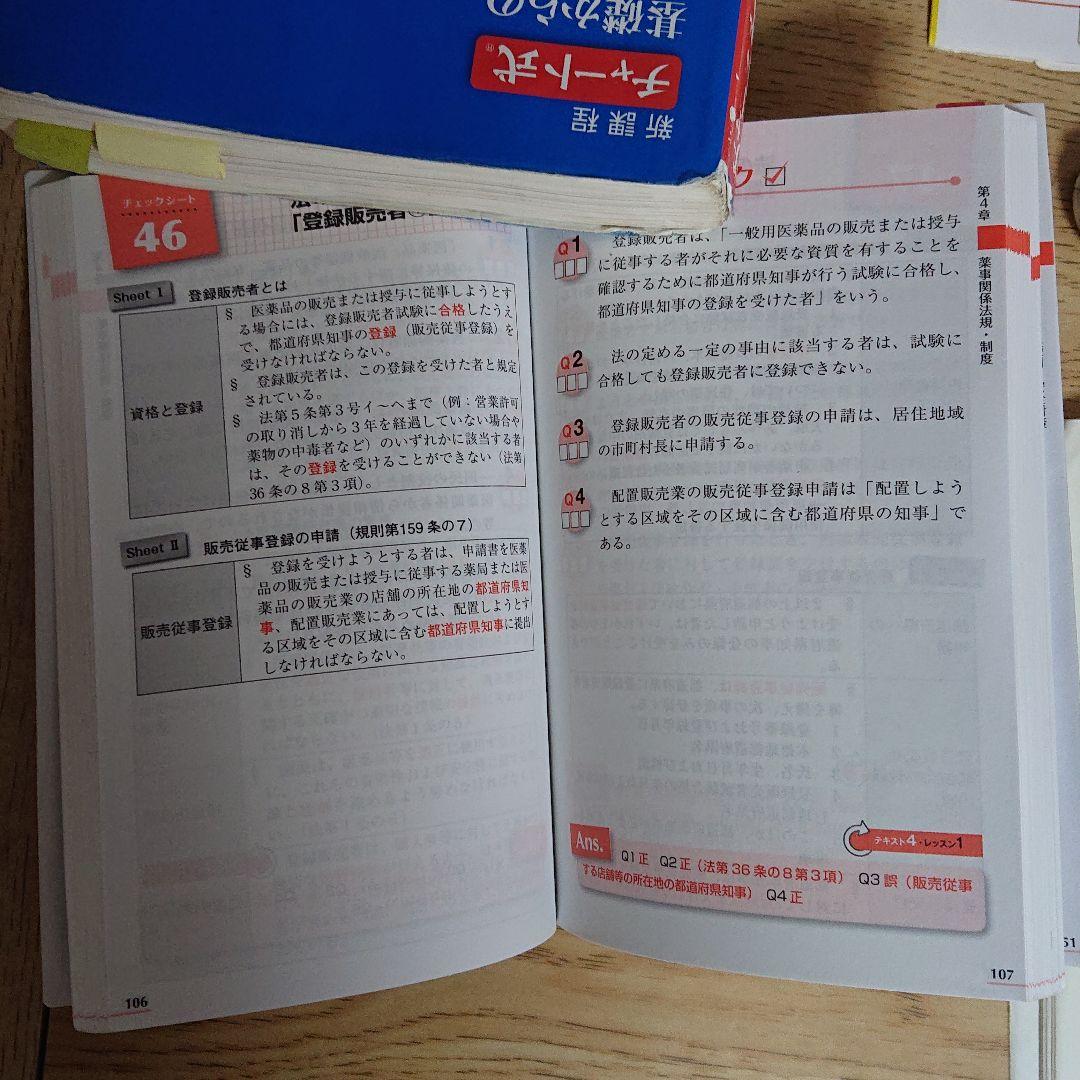 基礎からの
チャート式®
新課程
チェックシート
46
「登録販売者
Sheet Ⅰ 登録販売者とは
資格と登録
§ 医薬品の販売または授与に従事しようとす
る場合には、登録販売者試験に合格したうえ
で、都道府県知事の登録（販売従事登録）を
受けなければならない。
§ 登録販売者は、この登録を受けた者と規定
されている。
§ 法第5条第3号イ～ヘまで（例：営業許可
の取り消しから3年を経過していない場合や
薬物の中毒者など）のいずれかに該当する者
は、その登録を受けることができない（法第
36条の8第3項）。
Sheet Ⅱ 販売従事登録の申請（規則第159条の7）
販売従事登録
§ 登録を受けようとする者は、申請書を医薬
品の販売または授与に従事する薬局または医
薬品の販売業の店舗の所在地の都道府県知
事、配置販売業にあっては、配置しようとす
る区域をその区域に含む都道府県知事に提出
しなければならない。
106
ク
第4章 薬事関係法規・制度
Q1 登録販売者は、「一般用医薬品の販売または授与
に従事する者がそれに必要な資質を有することを
確認するために都道府県知事が行う試験に合格し、
都道府県知事の登録を受けた者」をいう。
Q2 法の定める一定の事由に該当する者は、試験に
合格しても登録販売者に登録できない。
Q3 登録販売者の販売従事登録の申請は、居住地域
の市町村長に申請する。
Q4 配置販売業の販売従事登録申請は「配置しよう
とする区域をその区域に含む都道府県の知事」で
ある。
テキスト4・レッスン1
Ans. Q1正 Q2正（法第36条の8第3項） Q3誤（販売従事
する店舗等の所在地の都道府県知事） Q4正
107